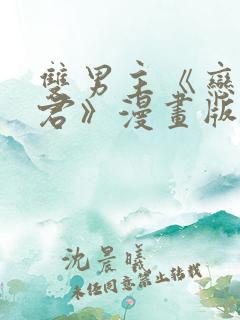 雙男主《戀
君》漫畫版
沈晨曦
未经同意禁止转载